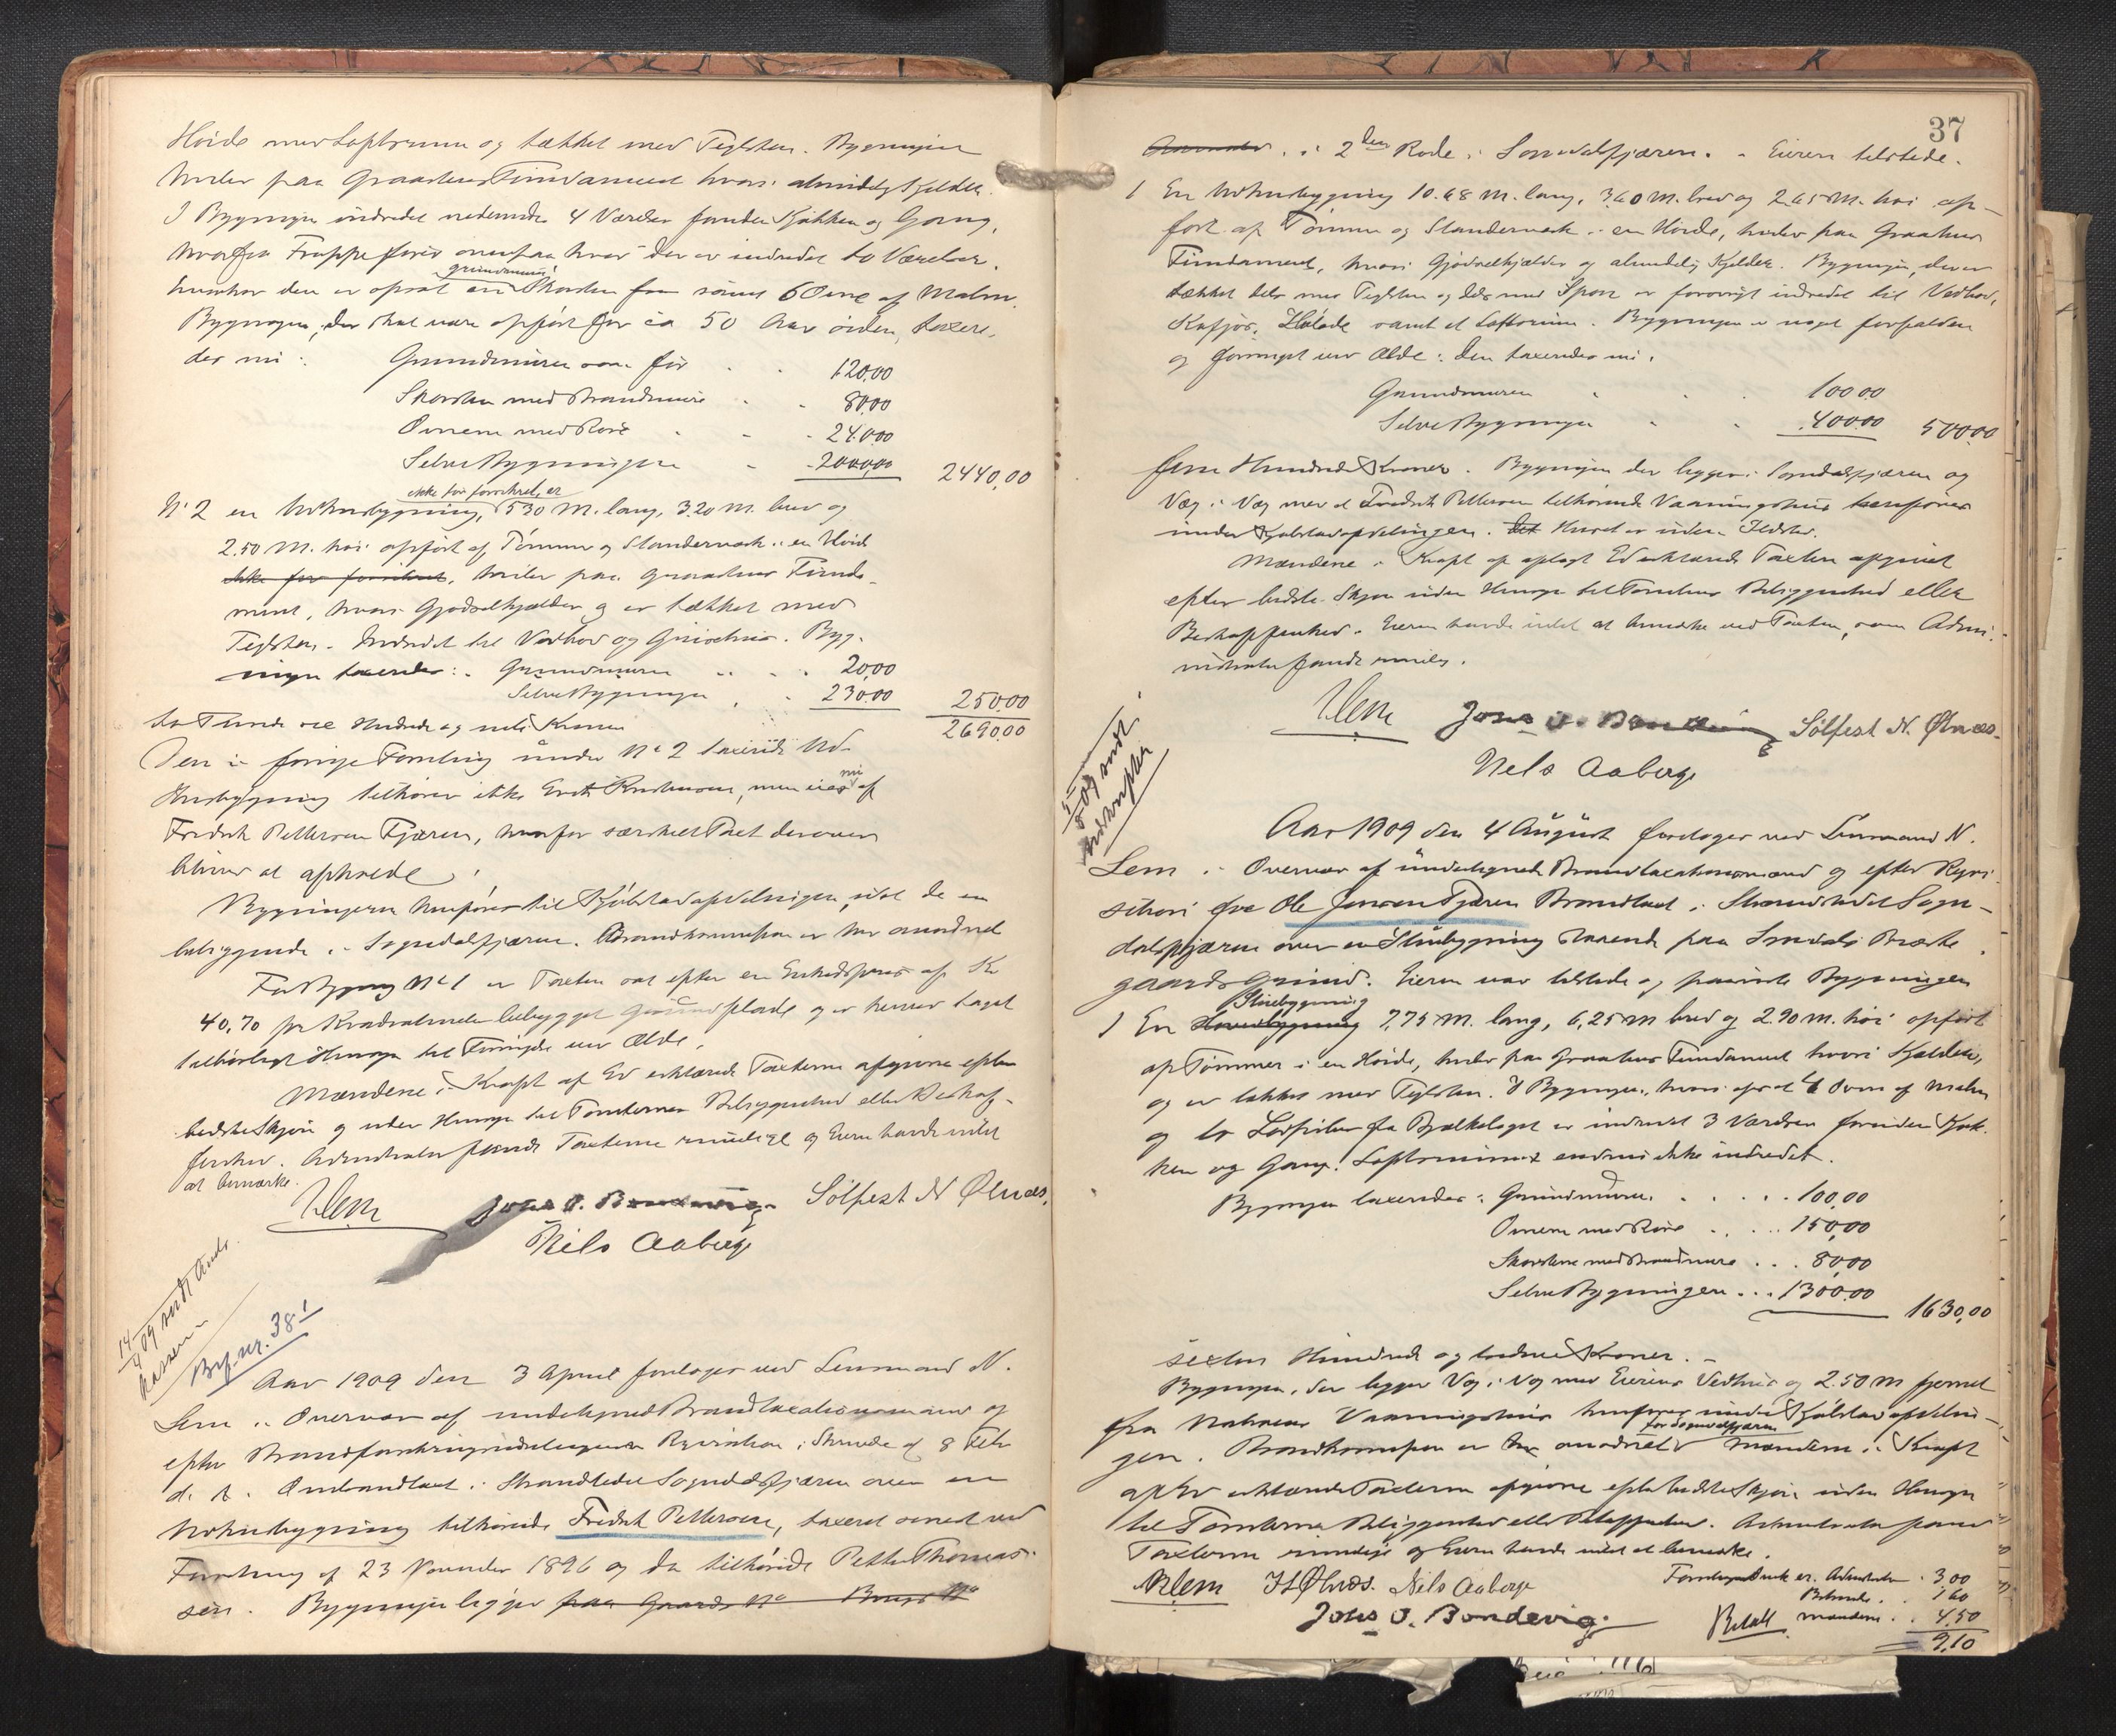 Høide med Loftsrum og tækket med Teglsten. Bygningen
hviler paa Graastens Fundament hvori almindelig Kjelder.
I Bygningen indredet nedenunder 4 Værelser foruden Kjøkken og Gang,
hvorfra Trappe fører ovenpaa hvor der er indredet to Værelser.
grundmuret
den er opsat en Skorsten samt 6 Ovne af Malm.
Bygningen, der skal være opført for ca 50 Aar siden, taxere-
des nu: Grundmuren som før 120,00
Skorsten med Brandmure 80,00
Ovnene med Rør 240,00
Selve Bygningen 2000,00 2440,00
ikke før forsikret, er
N. 2 en Udhusbygning, 5.30 M. lang, 3.20 M. bred og
2.50 M. høi opført af Tømmer og Standerværk i en Høide
ikke før forsikret, hviler paa Graastens Funda-
ment, hvori Gjødselkjelder og er tækket med
Teglsten. Indredet til Vedbod og Grisehus. Byg-
ningen taxeredes: Grundmuren 20,00
Selve Bygningen 230,00 250,00
to Tusinde sex Hundrede og niti Kroner 2690,00
Den i forrige Forretning under No 2 taxerede Ud-
nu
husbygning tilhører ikke Erik Rasmussen, men eies af
Fredrik Pettersen Fjæren, hvorfor særskilt Taxt derover
bliver at afholde.
Bygningerne henføres til Kjøbstadafdelingen, idet de er
beliggende i Sogndalsfjæren. Brandkommission er her anordnet
For Bygning No 1 er Taxten sat efter en Enhedspris af Kr
40,70 pr Kvadratmeter bebygget Grundflade og er herved taget
tilbørligt Hensyn til Forringelse ved Ælde.
Mændene i Kraft af Ed erklærede Taxterne afgivne efter
bedste Skjøn og uden Hensyn til Tomternes Beliggenhed eller Beskaf-
fenhed. Administrator fandt Taxterne rimelige og Eieren havde intet
at bemærke.
NLem Johs O. Bondevig. Sølfest N Ølnæs.
Nils Aaberge
14/4 09 sendt Amts
kassereren
Byf. nr. 381
Aar 1909 den 3 April foretoges ved Lensmand N.
Lem i Overvær af undertegnede Brandtaxationsmænd og
efter Brandforsikringsindretningens Rekvisition i Skrivelse af 8 Febr
d. A. Ombrandtaxt i Strandstedet Sogndalsfjæren over en
Udhusbygning tilhørende Fredrik Pettersen, taxeret senest ved
Forretning af 23 November 1896 og da tilhørende Petter Thomas-
sen. Bygningen ligger paa Gaards No Brugs No
37
i 2den Rode i Sogndalsfjæren. Eieren tilstede.
1 En Udhusbygning 10.68 M. lang, 3.60 M. bred og 2.65 M. høi op-
ført af Tømmer og Standerværk i en Høide, hviler paa Graastens
Fundament, hvori Gjødselkjælder og almindelig Kjelder. Bygningen, der er
tækket dels med Teglsten og dels med Spon er forøvrigt indredet til Vedbod,
Kufjøs, Hølade samt et Loftsrum. Bygningen er noget forfalden
og forringet ved Ælde: Den taxeredes nu:
Grundmuren 100,00
Selve Bygningen 400,00 500,00
fem Hundrede Kroner. Bygningen der ligger i Sogndalsfjæren og
Væg i Væg med et Fredrik Pettersen tilhørende Vaaningshus henføres
under Kjøbstadafdelingen. Det Huset er uden Ildsted.
Mændene i Kraft af aflagt Ed erklærede Taxten afgivet
efter bedste Skjøn uden Hensyn til Tomtens Beliggenhed eller
Beskaffenhed. Eieren havde intet at bemærke ved Taxten, som Admi-
nistrator fandt rimelig.
NLem Johs O. Bondevig Sølfest N. Ølnæs.
Nils Aaberge
5/8 09 sendt
Aar 1909 den 4 August foretoges ved Lensmand N.
Lem i Overvær af undertegnede Brandtaxationsmænd og efter Rekvi-
sition fra Ole Jensen Fjæren Brandtaxt i Strandstedet Sogn-
dalsfjæren over en Stuebygning staaende paa Sogndals Præste
gaards Grund. Eieren var tilstede og paaviste Bygningen
Stuebygning
1 En Hovedbygning 7,75 M. lang, 6,25 M bred og 2.90 M. høi opført
af Tømmer i en Høide, hviler paa Graastens Fundament hvori Kjælder,
og er tækket med Teglsten. I Bygningen, hvori opsat 4 Ovne af Malm
og to fra Bjælkelaget er indredet 3 Værelser foruden Kjøk-
ken og Gang. Loftsrummet endnu ikke indredet.
Bygningen taxeredes: Grundmuren 100,00
Ovnene med Rør 150,00
Skorstene med Brandmure 80,00
Selve Bygningen 1300,00 1630,00
sexten Hundrede og tredive Kroner.
Bygningen, der ligger Væg i Væg med Eierens Vedhus og 2.50 M fjernet
fra Naboens Vaaningshus henføres under Kjøbstadafdelin-
for Sogndalsfjæren
gen. Brandkommission er her anordnet. Mændene i Kraft
af Ed erklærede Taxterne afgivne efter bedste Skjøn uden Hensyn
til Tomterne Beliggenhed eller Beskaffenhed. Administrator fandt
Taxterne rimelige og Eieren havde intet at bemærke.
NLem Ølnæs. Nils Aaberge
Johs O. Bondevig.
Administrator 3,00
1,60
Betalt mændene 4,50
9,10